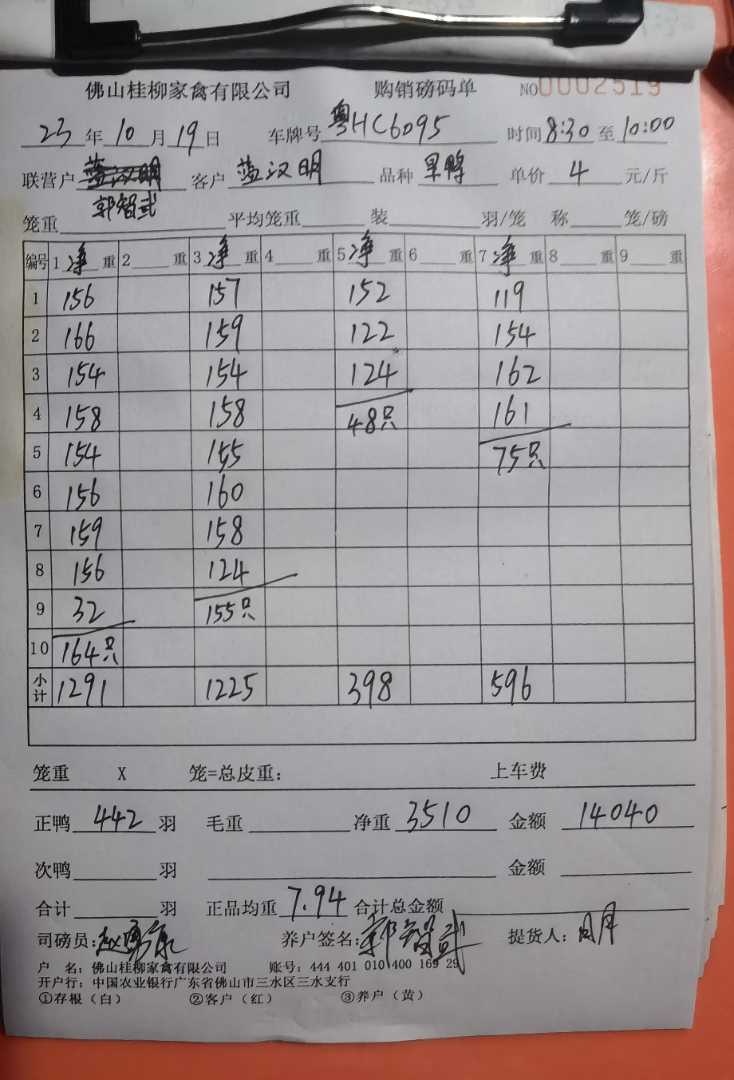 佛山桂柳家禽有限公司 购销磅码单 NO0002519
23年10月19日 车牌号粤HC6095 时间8:30至10:00
联营户蓝汉明 客户蓝汉明 品种 单价4元/斤
郭智武
笼重 平均笼重 装 羽/笼 称 笼/磅
编号 1净重 2 重 3净重 4 重 5净重 6 重 7净重 8 重 9 重
1 156 157 152 119
2 166 159 122 154
3 154 154 124 162
4 158 158 48只 161
5 154 155 75只
6 156 160
7 159 158
8 156 124
9 32 155只
10 164只
小计 1291 1225 398 596
笼重 X 笼=总皮重: 上车费
正鸭442羽 毛重 净重3510 金额14040
次鸭 羽 金额
合计 羽 正品均重7.94 合计总金额
司磅员: 养户签名:郭智武 提货人:
户 名: 佛山桂柳家禽有限公司 账号: 444 401 010 400 169 29
开户行: 中国农业银行广东省佛山市三水区三水支行
①存根（白） ②客户（红） ③养户（黄）